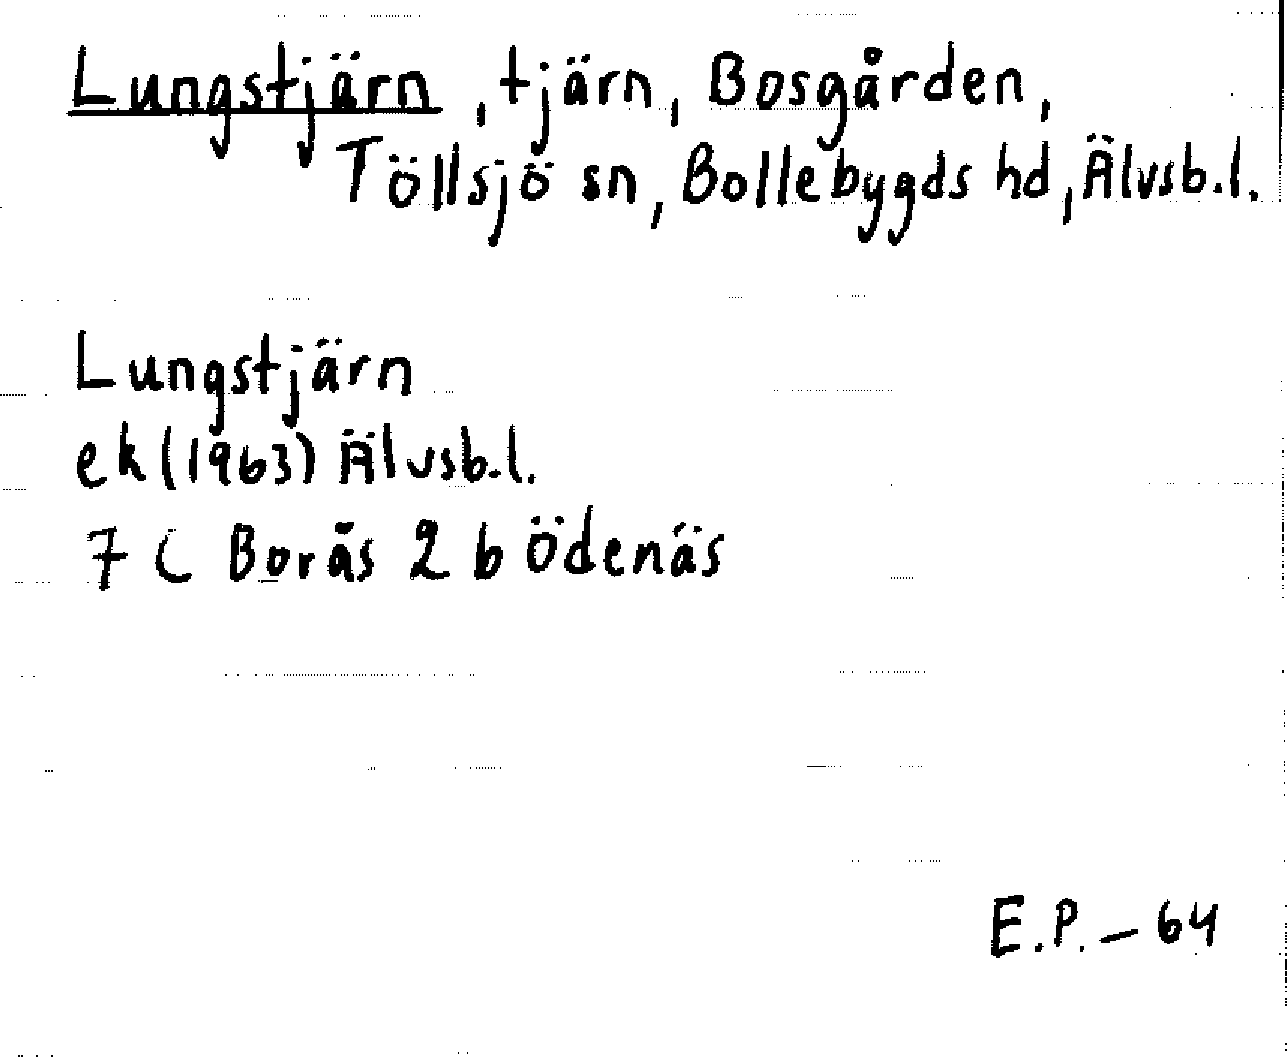 Lungstjärn, tjärn, Bosgården,
Töllsjö sn, Bollebygds hd, Älvsb.l.
Lungstjärn
ek (1963) Älvsb.l.
7 C Borås 2 b Ödenäs
E.P. – 64